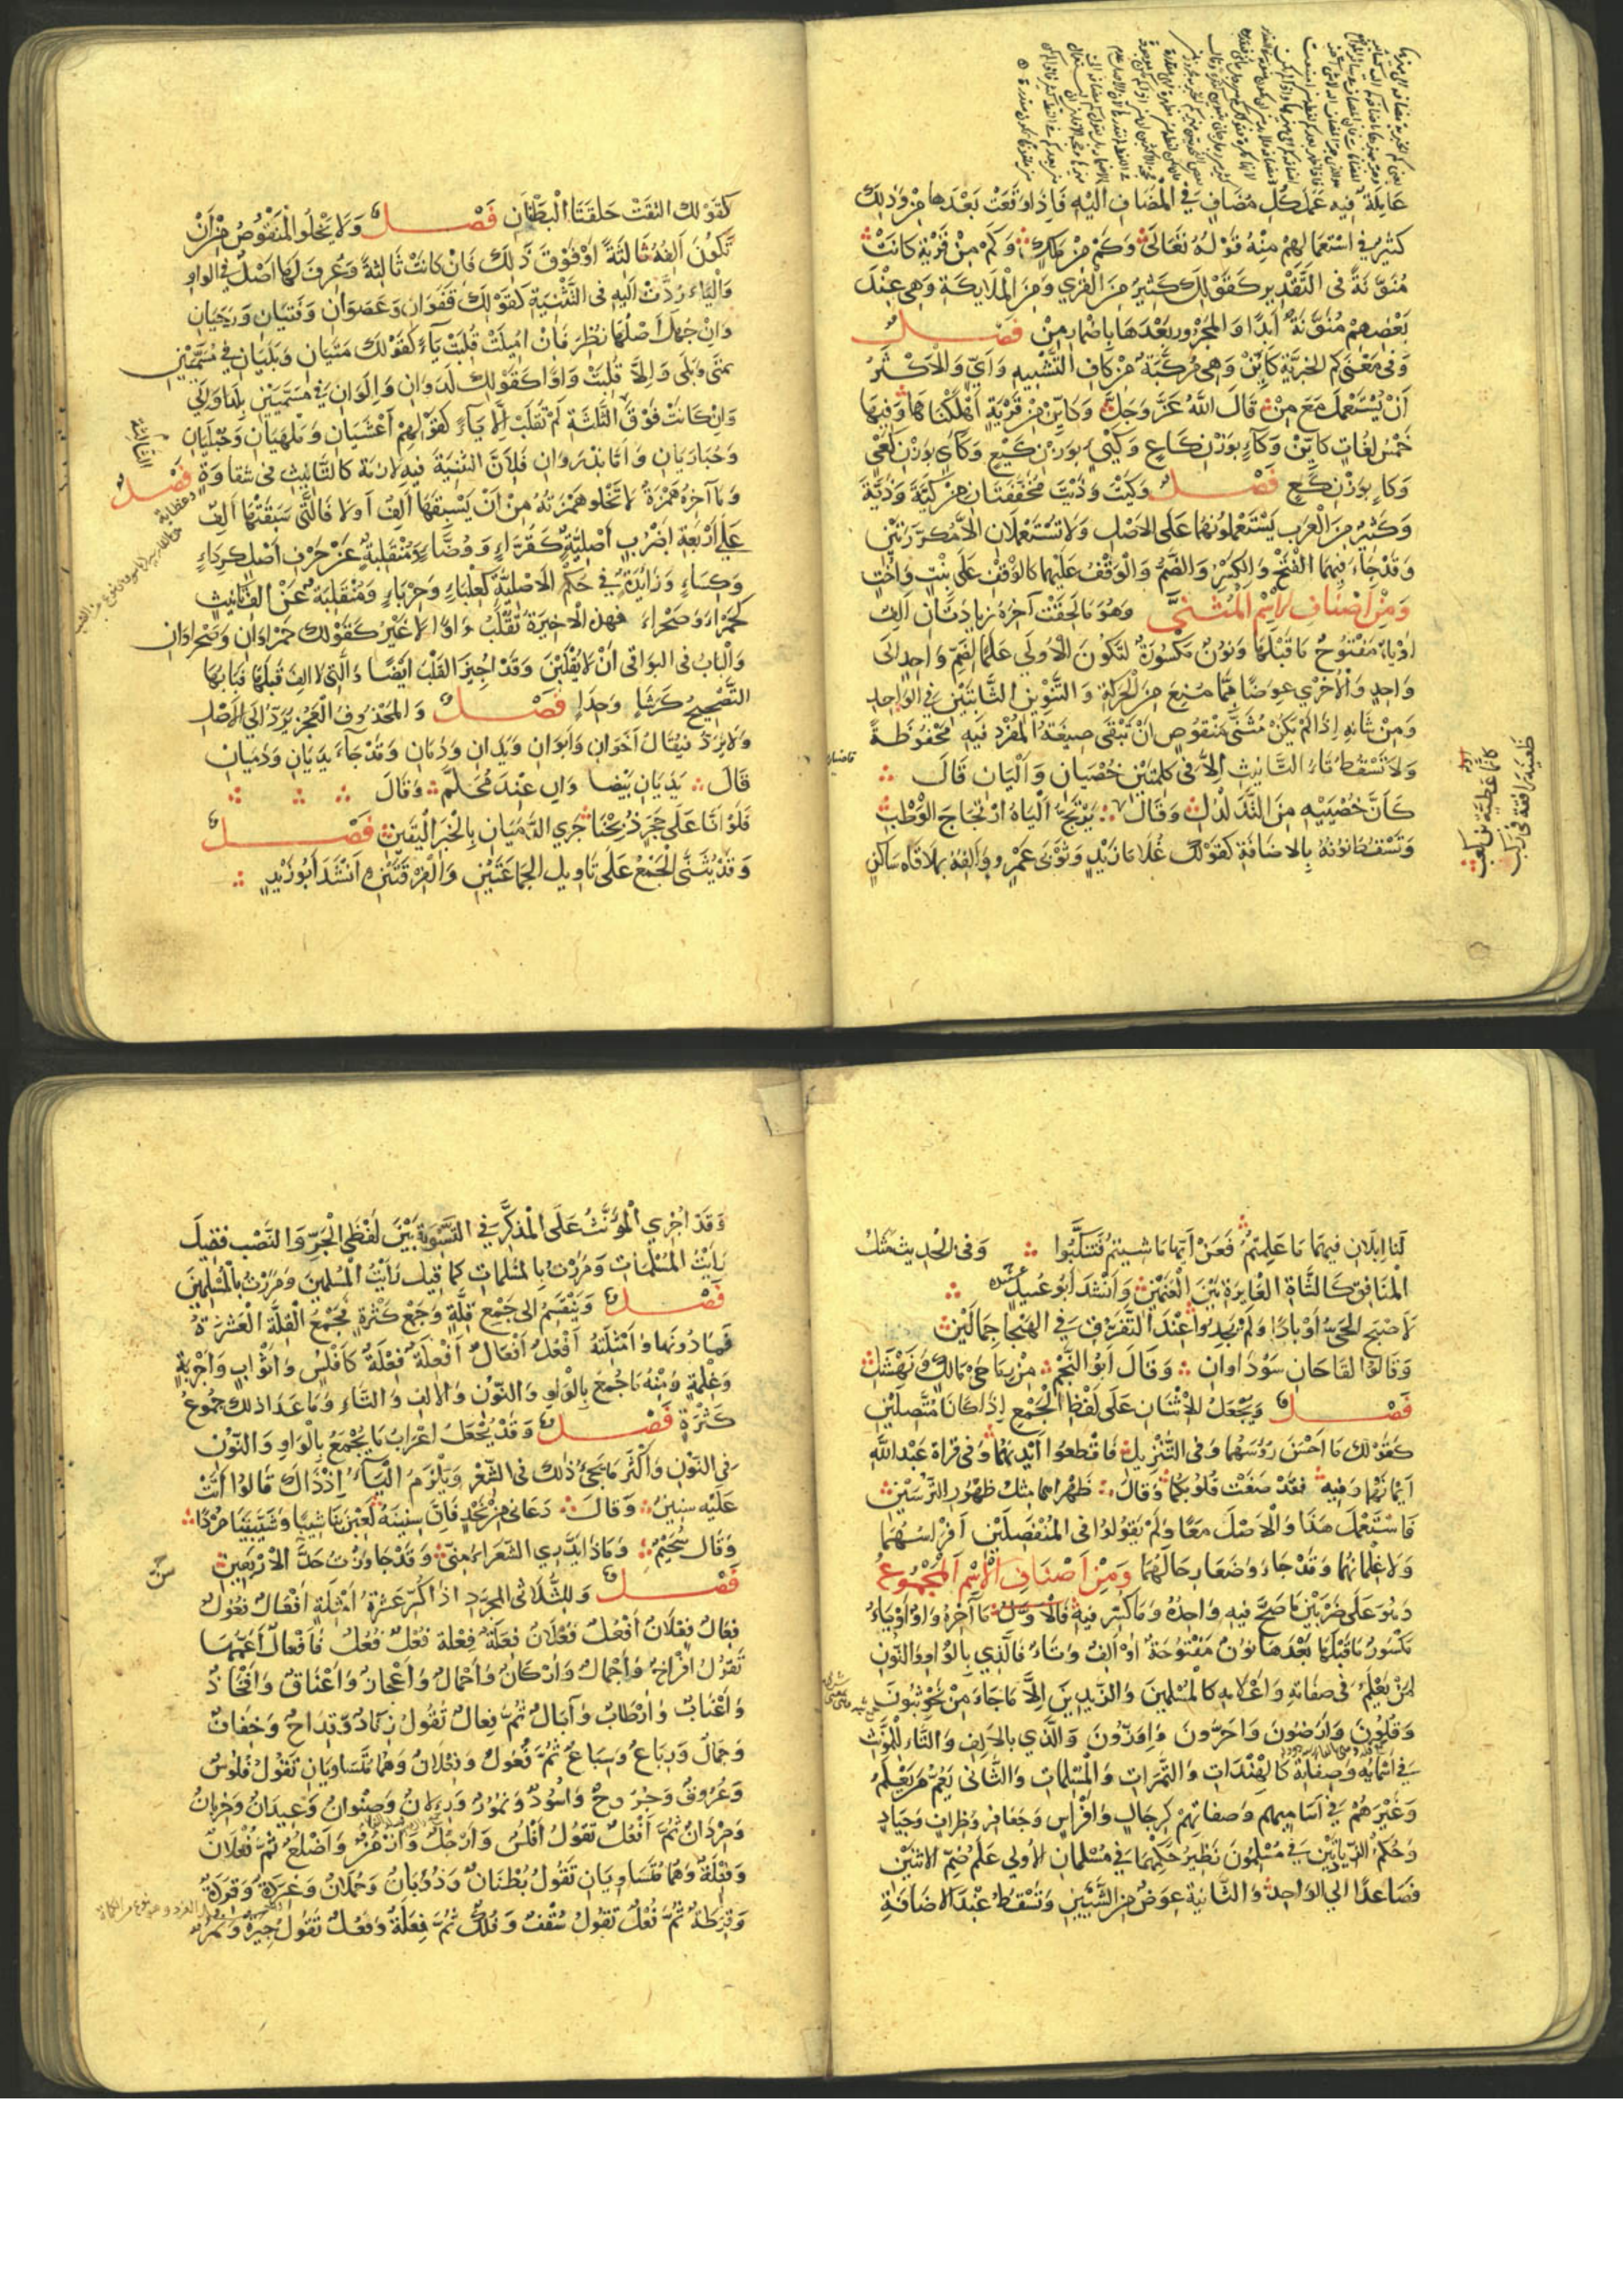 عَامِلَةٌ فيه عَمَلَ كُلِّ مُضَافٍ في الْمُضَافِ الَيْهِ فَاِذَا وَقَعَتْ بَعْدَها مِنْ وَذلِكَ
كَثِيرٌ في اسْتِعْمَالِهِمْ مِنْهُ قَوْلُهُ تَعَالَى وَكَمْ مِنْ مَلَكٍ وَكَمْ مِنْ قَرْيَةٍ كَانَتْ
مُنَوَّنَةً في التَّقْدِيرِ كَقَوْلِكَ كَثِيرٌ مِنَ الْقُرَي وَمِنَ الْمَلَايِكَةِ وَهى عِنْدَ
بَعْضِهِمْ مُنَوَّنَةٌ اَبَدًا وَالمَجْرُورُ بَعْدَهَا بِاِضْمَارِ مِنْ فَصْلٌ
وَفى مَعْنَى كَم الخَبَرِيَّةِ كَايِّنْ وَهى مُرَكَّبَةٌ مِنْ كَافِ التَّشْبِيهِ وَاَيٍّ وَالْاَكْثَرُ
اَنْ يُسْتَعْمَلَ مَعَ مِنْ قَالَ اللّٰهُ عَزَّ وَجَلَّ وَكَايِّنْ مِنْ قَرْيَةٍ اَهْلَكْنَاهَا وَفِيهَا
خَمْسُ لُغَاتٍ كَايِّنْ وَكَاءٍ بِوَزْنِ كَاعٍ وَكَيْئٍ بِوَزْنِ كَيْعٍ وَكَأْيٍ بِوَزْنِ كَعْيٍ
وَكَاءٍ بِوَزْنِ كَعٍ فَصْلٌ وَكَيْتَ وَذَيْتَ مُخَفَّفَتَانِ مِنْ كَيَّةَ وَذَيَّةَ
وَكَثِيرٌ مِنَ الْعَرَبِ يَسْتَعْمِلُونَهُمَا عَلَى الاَصْلِ وَلَا تُسْتَعْمَلَانِ اِلاَّ مُكَرَّرَتَيْنِ
وَقَدْ جَاءَ فِيهِمَا الفَتْحُ وَالْكَسْرُ وَالضَّمُّ وَالْوَقْفُ عَلَيْهِمَا كَالْوَقْفِ عَلَى بِنْتٍ وَاُخْتٍ
وَمِنْ اَصْنَافِ الْاِسْمِ الْمُثَنَّي وَهُوَ مَا لَحِقَتْ آخِرَهُ زِيَادَتَانِ اَلِفٌ
اَوْ يَاءٌ مَفْتُوحٌ مَا قَبْلَهَا وَنُونٌ مَكْسُورَةٌ لِتَكُونَ الْاُولَي عَلَمًا لِضَمِّ وَاحِدٍ الَى
وَاحِدٍ وَالْاُخْرَي عِوَضًا مِمَّا مُنِعَ مِنَ الْحَرَكَةِ وَالتَّنْوِينِ الثَّابِتَيْنِ في الوَاحِدِ
وَمِنْ شَانِهِ اِذَا لَمْ يَكُنْ مُثَنَّى مَنْقُوصٍ اَنْ تَبْقَى صِيغَةُ الْمُفْرَدِ فِيهِ مَحْفُوظَةً
وَلَا تَسْقُطُ تَاءُ التَّانِيثِ اِلاَّ في كَلِمَتَيْنِ خُصْيَانِ وَاَلْيَانِ قَالَ
كَاَنَّ خُصْيَيْهِ مِنَ التَّدَلْدُلِ وَقَالَ يَرْتَجُّ اَلْيَاهُ ارْتِجَاجَ الْوَطْبِ
وَتَسْقُطُ نُونُهُ بِالاضَافَةِ كَقَوْلِكَ غُلَامَا زَيْدٍ وَثَوْبَى عَمْرٍو وَاَلِفُهُ بِمُلَاقَاةِ سَاكِنٍ
كَانَّمَا عَطِيَّةُ بْنُ كَعْبِ
ظَعِينَةٌ وَاقِفَةٌ فى رَكْبِ
كَقَوْلِكَ التَقَتْ حَلقَتَا الْبِطَانِ فَصْلٌ وَلَا يَخْلُو المَنْقُوصُ مِنْ اَنْ
تَكُونَ اَلِفُهُ ثَالِثَةً اَوْ فَوْقَ ذَلِكَ فَاِنْ كَانَتْ ثَالِثَةً وَعُرِفَ لَهَا اَصْلٌ في الوَاوِ
وَاليَاءِ رُدَّتْ الَيْهِ في التَّثْنِيَةِ كَقَوْلِكَ قَفَوَانِ وَعَصَوَانِ وَفَتَيَانِ وَرَحَيَانِ
وَاِنْ جُهِلَ اَصْلُهَا نُظِرَ فَاِنْ اُمِيلَتْ قُلِبَتْ يَاءً كَقَوْلِكَ مَتَيَانِ وَبَلَيَانِ في مُسَمَّيَيْنِ
بمَتَى وَبَلَى وَاِلاَّ قُلِبَتْ وَاوًا كَقَوْلِكَ لَدَوَانِ وَاِلَوَانِ في مُسَمَّيَيْنِ بِلَدَا وَاِلَى
وَاِنْ كَانَتْ فَوْقَ الثَّلَاثَةِ لَمْ تُقْلَبْ اِلَّا يَاءً كَقَوْلِهِمْ اَعْشَيَانِ وَمَلْهَيَانِ وَحُبْلَيَانِ
وَحُبَارَيَانِ وَاَمَّا مِذْرَوَانِ فَلِاَنَّ التَثْنِيَةَ فِيهِ لَازِمَة كَالتَّانِيثِ في شَقَاوَةٍ فَصْلٌ
وَمَا آخِرُهُ هَمْزَةٌ لَا تَخْلُو هَمْزَتُهُ مِنْ اَنْ يَسْبِقَهَا اَلِفٌ اَوَلَا فَالَّتِى سَبَقَتْهَا اَلِفٌ
عَلَى اَرْبَعَةِ اضْرُبٍ اَصْلِيَّةٌ كَقُرَّاءٍ وَوُضَّاءٍ وَمُنْقَلِبَةٌ عَنْ حَرْفٍ اَصْلٍ كرِدَاءٍ
وَكِسَاءٍ وَزَايِدَةٌ في حُكْمِ الاَصْلِيَّةِ كَعِلْبَاءٍ وَحِرْبَاءٍ وَمُنْقَلِبَةٌ عَنْ الفِ تَانِيثٍ
كَحَمْرَاءَ وَصَحْرَاءَ فهذِهِ الاَخِيرَةُ تُقْلَبُ وَاوًا لَا غَيْرُ كَقَوْلِكَ حَمْرَاوَانِ وَصَحْرَاوَانِ
وَالْبَابُ في البَوَاقى اَنْ لَا يُقْلَبْنَ وَقَدْ اُجِيزَ القَلْبُ اَيْضًا وَالَّتِى لا الِفَ قَبْلَهَا فَبَابُهَا
التَّصْحِيحُ كَرَشَاءٍ وَحِدَاءٍ فَصْلٌ وَالمَحْذُوفُ الْعَجُزِ يُرَدُّ الَى الاَصْلِ
وَلَا يُرَدُّ فَيُقَالُ اَخَوَانِ وَاَبَوَانِ وَيَدَانِ وَدَمَانِ وَقَدْ جَاءَ يَدَيَانِ وَدَمَيَانِ
قَالَ يَدَيَانِ بَيْضَاوَانِ عِنْدَ مُحَلِّمٍ وَقَالَ
فَلَوْ اَنَّا عَلَى حَجَرٍ ذُبِحْنَا جَرَي الدَّمَيَانِ بِالْخَبَرِ الْيَقِينِ فَصْلٌ
وَقَدْ يُثَنَّى الْجَمْعُ عَلَى تَاوِيلِ الجَمَاعَتَيْنِ وَالْفِرْقَتَيْنِ اَنْشَدَ اَبُو زَيْدٍ
لَنَا اِبِلَانِ فِيهِمَا مَا عَلِمْتُمُ فَعَنْ اَيِّهَا مَا شِيتُمُ فَتَنَكَّبُوا وَفى الْحَدِيثِ مَثَلُ
الْمُنَافِقِ كَالشَّاةِ الْعَايِرَةِ بَيْنَ الْغَنَمَيْنِ وَاَنْشَدَ اَبُو عُبَيْدٍ
لَاَصْبَحَ الحَىُّ اَوْبَادًا وَلَمْ يَجِدُوا عِنْدَ التَّفَرُّقِ في الْهَيْجَا جِمَالَيْنِ
وَقَالُوا لِقَاحَانِ سَوْدَاوَانِ وَقَالَ اَبُو النَّجْمِ بَيْنَ رِمَاحَىْ مَالِكٍ وَنَهْشَلِ
فَصْلٌ وَيُجْعَلُ الاِثْنَانِ عَلَى لَفْظِ الْجَمْعِ اِذَا كَانَا مُتَّصِلَيْنِ
كَقَوْلِكَ مَا اَحْسَنَ رُؤُسَهُمَا وَفى التَّنْزِيلِ فَاقْطَعُوا اَيْدِيَهُمَا وَفى قِرَاةِ عَبْدِ اللّٰهِ
اَيْمَانَهُمَا وَفِيهِ فَقَدْ صَغَتْ قُلُوبُكُمَا وَقَالَ ظَهْرَاهُمَا مِثْلُ ظُهُورِ التُّرْسَيْنِ
فَاسْتَعْمَلَ هَذَا وَالْاَصْلَ مَعًا وَلَمْ يَقُولُوا في المُنْفَصِلَيْنِ اَفْرَاسُهُمَا
وَلَا غِلْمَانُهُمَا وَقَدْ جَاءَ وَضَعَا رِحَالَهُمَا وَمِنْ اَصْنَافِ الْاِسْمِ الْمَجْمُوعُ
وَهُوَ عَلَى ضَرْبَيْنِ مَا صَحَّ فِيهِ وَاحِدُهُ وَمَا كُسِّرَ فِيهِ فَالاَوَّلُ مَا آخِرُهُ وَاوٌ اَوْ يَاءٌ
مَكْسُورٌ مَا قَبْلَهَا بَعْدَهَا نُونٌ مَفْتُوحَةٌ اَوْ اَلِفٌ وَتَاءٌ فَالَّذِي بِالْوَاوِ وَالنُّونِ
لِمَنْ يَعْلَمُ في صِفَاتِهِ وَاَعْلَامِهِ كَالْمُسْلِمِينَ وَالزَّيْدِينَ اِلَّا مَا جَاءَ مِنْ نَحْوِ ثُبُونَ
وَقُلُونَ وَاَرَضُونَ وَاَحَرُّونَ وَاِوَزُّونَ وَالَّذِي بِالاَلِفِ وَالتَّاءِ لِلْمُؤَنَّثِ
في اَسْمَايِهِ وَصِفَاتِهِ كَالْهِنْدَاتِ وَالتَّمَرَاتِ وَالْمُسْلِمَاتِ وَالثَّانى يَعُمُّ مَنْ يَعْلَمُ
وَغَيْرَهُمْ في اَسَامِيهِمْ وَصِفَاتِهِمْ كَرِجَالٍ وَاَفْرَاسٍ وَجَعَافِرَ وَظِرَافٍ وَجِيَادٍ
وَحُكْمُ الزِّيَادَتَيْنِ في مُسْلِمُونَ نَظِيرُ حُكْمِهِمَا في مُسْلِمَانِ الاُولَى عَلَمُ ضَمِّ الاثْنَيْنِ
فَصَاعِدًا الى الوَاحِدِ وَالثَّانِيَةُ عِوَضٌ مِنَ الشَّيْئَيْنِ وَتَسْقُطُ عِنْدَ الاضَافَةِ
وَقَدْ اُجْرِي الْمُؤَنَّثُ عَلَى الْمُذَكَّرِ في التَّسْوِيَةِ بَيْنَ لَفْظَىِ الْجَرِّ وَالنَّصْبِ فَقِيلَ
رَاَيْتُ المُسْلِمَاتِ وَمَرَرْتُ بِالمُسْلِمَاتِ كَمَا قِيلَ رَاَيْتُ الْمُسْلِمِينَ وَمَرَرْتُ بِالْمُسْلِمِينَ
فَصْلٌ وَيَنْقَسِمُ الى جَمْعِ قِلَّةٍ وَجَمْعِ كَثْرَةٍ فَجَمْعُ القِلَّةِ الْعَشَرَةُ
فَمَا دُونَهَا وَاَمْثِلَتُهُ اَفْعُلٌ اَفْعَالٌ اَفْعِلَةٌ فِعْلَةٌ كَاَفْلُسٍ وَاَثْوَابٍ وَاَجْرِبَةٍ
وَغِلْمَةٍ وَمِنْهُ مَا جُمِعَ بِالْوَاوِ وَالنُّونِ وَالاَلِفِ وَالتَّاءِ وَمَا عَدَا ذلِكَ جُمُوعُ
كَثْرَةٍ فَصْلٌ وَقَدْ يُجْعَلُ اِعْرَابُ مَا يُجْمَعُ بِالْوَاوِ وَالنُّونِ
في النُّونِ وَاَكْثَرُ مَا يَجِىءُ ذلِكَ في الشِّعْرِ وَيَلْزَمُ الْيَاءُ اِذْ ذَاكَ قَالُوا اَتَتْ
عَلَيْهِ سِنِينٌ وَقَالَ دَعَانىَ مِنْ نَجْدٍ فَاِنَّ سِنِينَهُ لَعِبْنَ بِنَا شِيبًا وَشَيَّبْنَنَا مُرْدًا
وَقَالَ سُحَيْمٌ وَمَاذَا يَدَّرِي الشُّعَرَاءُ مِنِّى وَقَدْ جَاوَزْتُ حَدَّ الاَرْبَعِينِ
فَصْلٌ وَلِلثُّلَاثى المُجَرَّدِ اذَا كُسِّرَ عَشَرَةُ اَمْثِلَةٍ اَفْعَالٌ فُعُولٌ
فِعَالٌ فِعْلَانٌ اَفْعُلٌ فُعْلَانٌ فِعَلَةٌ فِعْلَة فُعْلٌ فُعُلٌ فَاَفْعَالٌ اَعَمُّهَا
تَقُولُ اَفْرَاخٌ وَاَجْمَالٌ وَاَرْكَانٌ وَاَحْمَالٌ وَاَعْجَازٌ وَاَعْنَاقٌ وَاَفْخَاذٌ
وَاَعْنَابٌ وَاَرْطَابٌ وَآبَالٌ ثُمَّ فِعَالٌ تَقُولُ زِنَادٌ وَقِدَاحٌ وَخِفَافٌ
وَجِمَالٌ وَرِبَاعٌ وَسِبَاعٌ ثُمَّ فُعُولٌ وَفِعْلَانٌ وَهُمَا مُتَسَاوِيَانِ تَقُولُ فُلُوسٌ
وَعُرُوقٌ وَجُرُوحٌ وَاُسُودٌ وَنُمُورٌ وَرِيلَانٌ وَصِنْوَانٌ وَعِيدَانٌ وَخِرْبَانٌ
وَصِرْدَانٌ ثُمَّ اَفْعُلٌ تَقُولُ اَفْلُسٌ وَاَرْجُلٌ وَاَزْمُنٌ وَاَضْلُعٌ ثُمَّ فُعْلَانٌ
وَفِعَلَةٌ وَهُمَا مُتَسَاوِيَانِ تَقُولُ بُطْنَانٌ وَذُؤْبَانٌ وَحُمْلَانٌ وَغِرَدَةٌ وَقِرَدَةٌ
وَقِرَطَةٌ ثُمَّ فُعْلٌ تَقُولُ سُقْفٌ وَفُلْكٌ ثُمَّ فِعْلَةٌ وَفُعُلٌ تَقُولُ جِيرَةٌ وَنُمُرٌ